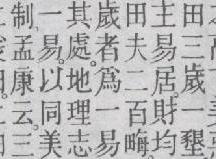 田三歲一墾
主易居財均
田夫二百畮
歲者爲一易
其處地理志
一易以同美
制孟康云三